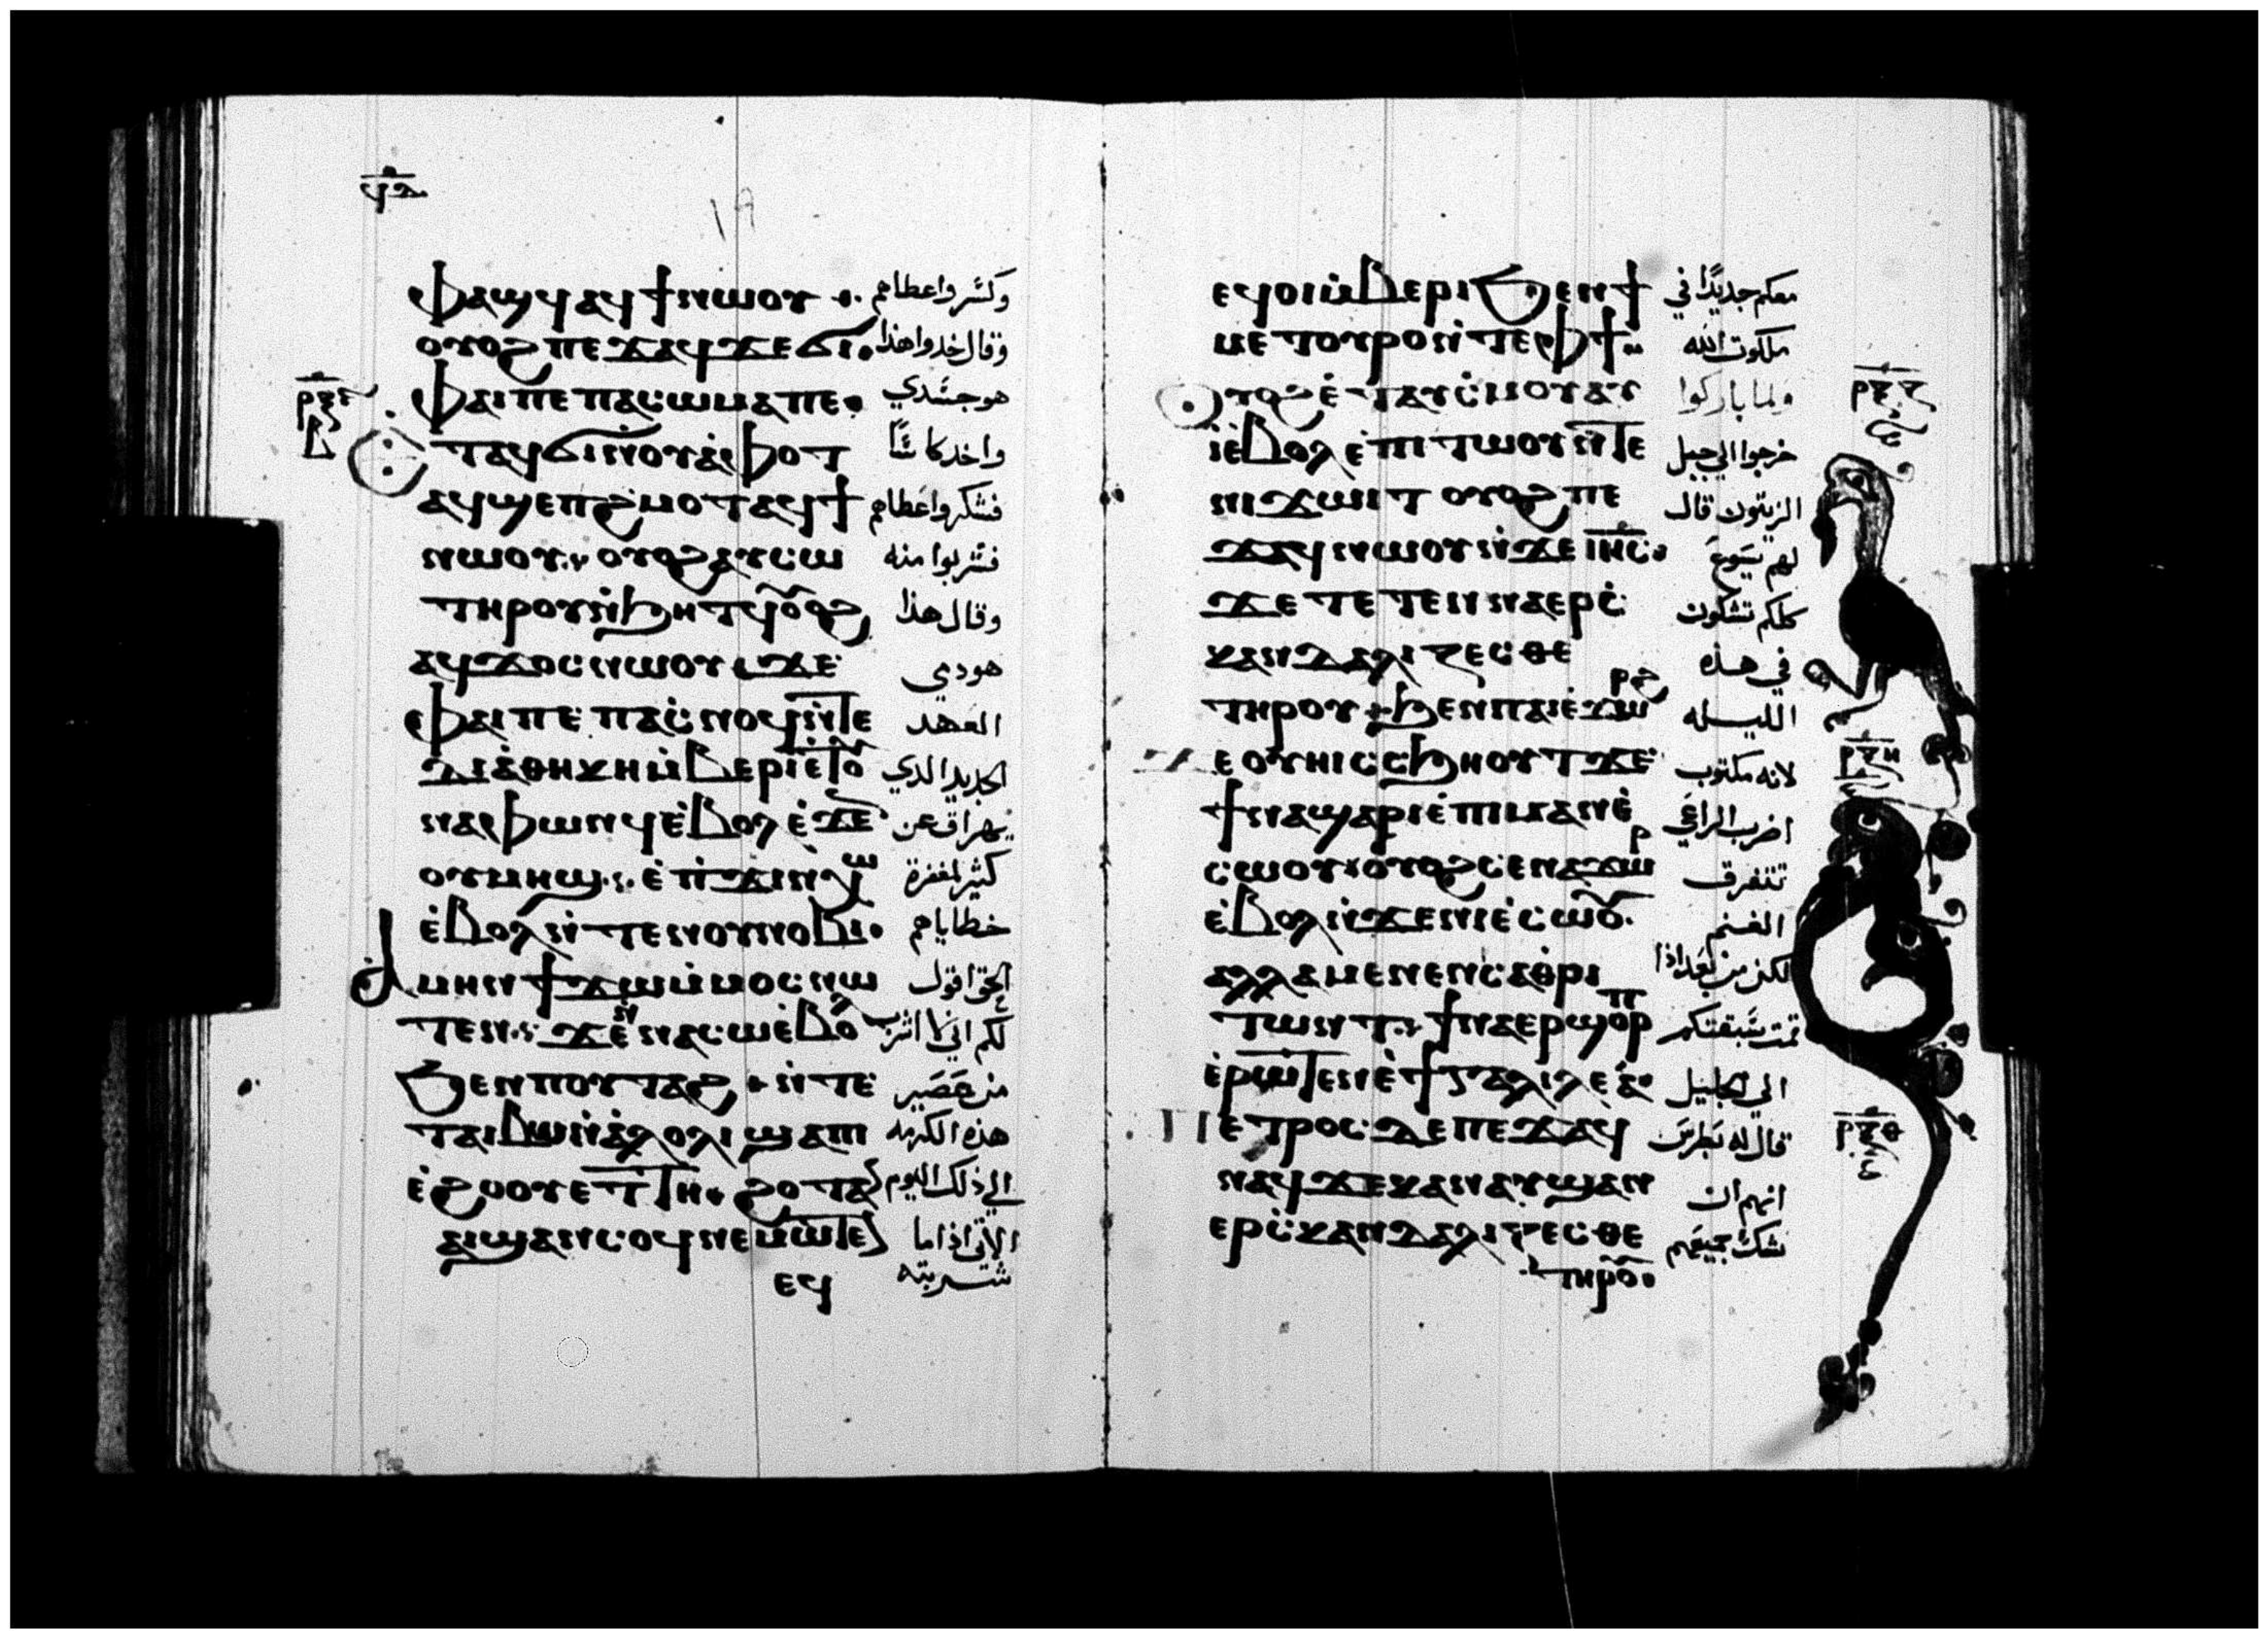 ϥⲇ
ⲫⲁϣϥ ⲁϥϯⲛⲱⲟⲩ وكسر واعطاهم
ⲟⲩⲟϩ ⲡⲉϫⲁϥ ϫⲉ ϭⲓ وقال خدوا هذا
ⲫⲁⲓ ⲡⲉ ⲡⲁⲥⲱⲙⲁ ⲡⲉ هو جسدي
ⲧⲁϥϭⲓ ⲛⲟⲩⲁⲫⲟⲧ واخد كاسا
ⲁϥϣⲉⲡϩⲙⲟⲧ ⲁϥϯ فشكر واعطاهم
ⲛⲱⲟⲩ ⲟⲩⲟϩ ⲁⲩⲥⲱ فشربوا منه
ⲧⲏⲣⲟⲩ ⲛϧⲏⲧϥ ⲟⲩⲟϩ وقال هذا
ⲁϥϫⲟⲥ ⲛⲱⲟⲩ ϫⲉ هو دمي
ⲫⲁⲓ ⲡⲉ ⲡⲁⲥⲛⲟϥ ⲛⲧⲉ العهد
ϯⲇⲓⲁⲑⲏⲕⲏ ⲙⲃⲉⲣⲓ ⲉⲧⲟⲩ الجديد الدي
ⲛⲁⲫⲱⲛϥ ⲉⲃⲟⲗ ⲉϫⲉⲛ يهراق عن
ⲟⲩⲙⲏϣ ⲉⲡϫⲓⲛⲭⲱ كثير لمغفرة
ⲉⲃⲟⲗ ⲛⲧⲉ ⲛⲟⲩⲛⲟⲃⲓ خطاياهم
ⲁⲙⲏⲛ ϯϫⲱ ⲙⲙⲟⲥ ⲛⲱ الحق اقول
ⲧⲉⲛ ϫⲉ ⲛⲛⲁⲥⲱ ⲉⲃⲟⲗ لكم اني لا اشرب
ϧⲉⲛ ⲡⲟⲩⲧⲁϩ ⲛⲧⲉ من عصير
ⲧⲁⲓⲃⲱ ⲛⲁⲗⲟⲗⲓ ϣⲁ ⲡⲓ هذه الكرمه
ⲉϩⲟⲟⲩ ⲉⲧⲧⲏ ϩⲟⲧⲁⲛ الي ذلك اليوم
ⲁⲓϣⲁⲛⲥⲟϥ ⲛⲉⲙⲱⲧⲉⲛ الاتي اذا ما
ⲉϥ شربته
ⲉϥⲟⲓ ⲙⲃⲉⲣⲓ ϧⲉⲛ ϯ معكم جديدًا في
ⲙⲉⲧⲟⲩⲣⲟ ⲛⲧⲉ ⲫϯ ملكوت الله
ⲟⲩⲟϩ ⲉⲧⲁⲩⲥⲙⲟⲩ ⲁⲩ ولما باركوا
ⲓ ⲉⲃⲟⲗ ⲉⲡⲓⲧⲱⲟⲩ ⲛⲧⲉ خرجوا الي جبل
ⲛⲓϫⲱⲓⲧ ⲟⲩⲟϩ ⲡⲉ الزيتون قال
ϫⲁϥ ⲛⲱⲟⲩ ⲛϫⲉ ⲓⲏⲥ لهم يسوع
ϫⲉ ⲧⲉⲧⲉⲛⲛⲁⲉⲣⲥ كلكم تشكون
ⲕⲁⲛⲇⲁⲗⲓⲍⲉⲥⲑⲉ في هذه
ⲧⲏⲣⲟⲩ ϧⲉⲛ ⲡⲁⲓⲉϫⲱⲣϩ الليله
ⲉⲟⲩⲏⲓ ⲥⲥϧⲏⲟⲩⲧ ϫⲉ لانه مكتوب
ϯⲛⲁϣⲁⲣⲓ ⲉⲡⲓⲙⲁⲛⲉ اضرب الراعي
ⲥⲱⲟⲩ ⲟⲩⲟϩ ⲥⲉⲛⲁϫⲱⲣ تتفرق
ⲉⲃⲟⲗ ⲛϫⲉ ⲛⲓⲉⲥⲱⲟⲩ الغنم
ⲁⲗⲗⲁ ⲙⲉⲛⲉⲛⲥⲁⲑⲣⲓ لكن من بعد اذا
ⲧⲱⲛⲧ ϯⲛⲁⲉⲣϣⲟⲣⲡ قمت سبقتكم
ⲉⲣⲱⲧⲉⲛ ⲉϯⲅⲁⲗⲓⲗⲉⲁ الي الجليل
ⲡⲉⲧⲣⲟⲥ ⲇⲉ ⲡⲉϫⲁϥ قال له بطرس
ⲛⲁϥ ϫⲉ ⲕⲁⲛ ⲁⲩϣⲁⲛ انهم ان
ⲉⲣⲥⲕⲁⲛⲇⲁⲗⲓⲍⲉⲥⲑⲉ شك جميعهم
ⲧⲏⲣⲟⲩ